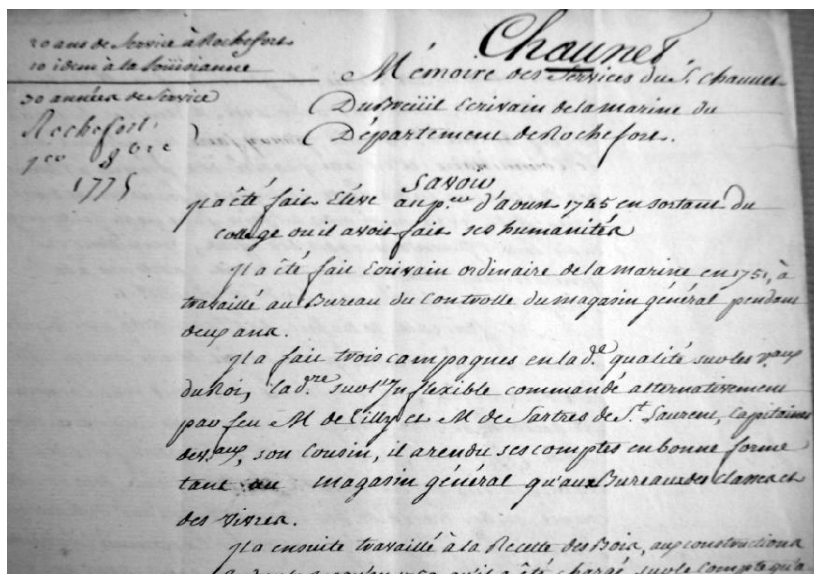 Chaunet
20 ans de Service à Rochefort
10 idem à la Loüisianne
30 années de Service
Rochefort
1er 8bre
1775
Mémoire des Services du S. Chaunet
DuBreüil Ecrivain de la marine du
Département de Rochefort.
Savoir
Il a été fait Elève au pr. d'aoust 1745 en sortant du
college ou il avoit fait ses humanités
Il a été fait Ecrivain ordinaire de la marine en 1751, à
travaillé au Bureau du Controlle du magasin général pendant
deux ans.
Il a fait trois campagnes en lad.e qualité sur les v.aux
du Roi, la d.re sur l'Inflexible commandé alternativement
par feu M de Tilly et M de Sartres de St. Laurent, Capitaines
de v.aux, son Cousin, il a rendu ses comptes en bonne forme
tant au magasin général qu'aux Bureaux des classes et
des vivres.
Il a ensuite travaillé à la Recette des Bois, aux constructions
qu'il a été chargé sur le compte qu'a